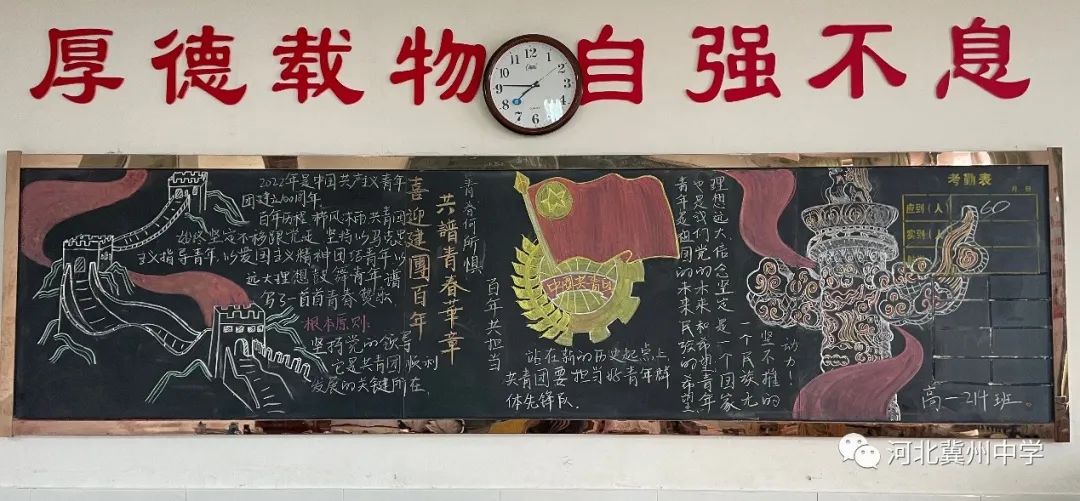 厚德载物
自强不息
12
1
2
3
4
5
6
7
8
9
10
11
2022年是中国共产主义青年
团建立100周年
百年历程 栉风沐雨 共青团
始终坚定不移跟党走 坚持以马克思
主义指导青年,以爱国主义精神团结青年,以
远大理想鼓舞青年 谱
写了一首首青春赞歌
根本原则:
坚持党的领导
它是共青团顺利
发展的关键所在.
喜迎建團百年
共譜青春華章
青春何所惧
百年共担当
中国共青团
站在新的历史起点上
共青团要担当好青年群
体先锋队.
理想远大、信念坚定是一个国家
一个民族无
坚不摧的
动力!
也是我们党的未来和希望
青年是祖国的未来民族的希望
考勤表
月 日
应到(人)
60
实到(人)
高一214班
河北冀州中学